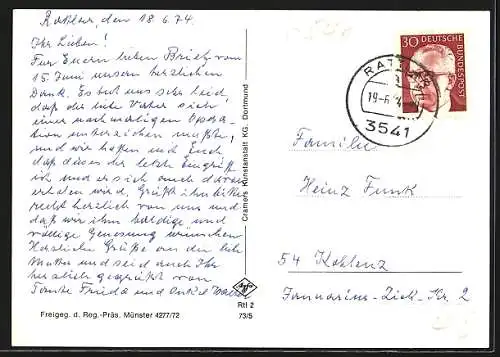 Rattlar, den 18.6.74.
Ihr Lieben!
Für Euern lieben Brief vom
15. Juni unsern herzlichen
Dank. Es tut uns sehr leid,
daß der liebe Vater sich
einer nochmaligen Opera-
tion unterziehen mußte,
und wir hoffen mit Euch
daß dieses der letzte Eingriff
ist und er sich auch davon
erholen wird. Grüßt ihn bitte
recht herzlich von uns und
daß wir ihm baldige und
völlige Genesung wünschen.
Herzliche Grüße an die liebe
Mutter und seid auch Ihr
herzlich gegrüßt von
Tante Frieda und Onkel
Freigeg. d. Reg.-Präs. Münster 4277/72
Cramers Kunstanstalt KG, Dortmund
Agfa
Rtl 2
73/5
30 DEUTSCHE BUNDESPOST
RATTLAR
19.-6.74
3541
Familie
Heinz Funk
54 Koblenz
Januarius-Zick-Str. 2